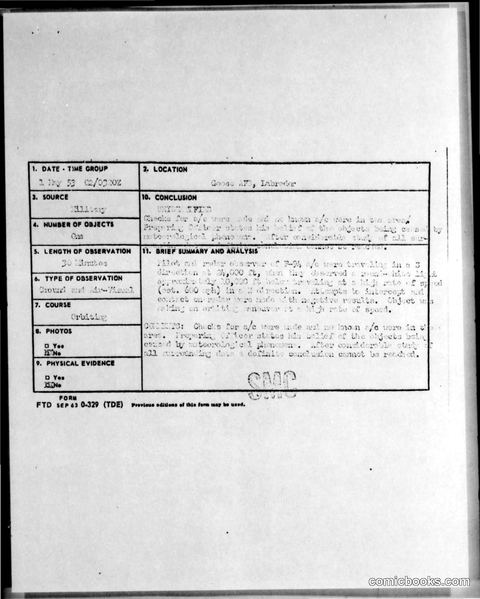 1. DATE - TIME GROUP
1 May 53 02/0320Z
2. LOCATION
Goose AFB, Labrador
3. SOURCE
Military
10. CONCLUSION
UNIDENTIFIED
Checks for a/c were made and no known a/c were in the area.
Preparing Officer states his belief of the objects being caused by
meteorological phenomenon. After considerable study of all sur-
4. NUMBER OF OBJECTS
One
5. LENGTH OF OBSERVATION
30 Minutes
11. BRIEF SUMMARY AND ANALYSIS
Pilot and radar observer of F-94 a/c were traveling in a S
direction at 24,000 ft, when they observed a white light
approximately 10,000 ft below traveling at a high rate of speed
(est. 600 mph) in a direction. Attempts to intercept and
contact on radar were made with negative results. Object was
making an orbiting maneuver at a high rate of speed.
6. TYPE OF OBSERVATION
Ground and Air-Visual
7. COURSE
Orbiting
8. PHOTOS
□ Yes
No
COMMENTS: Checks for a/c were made and no known a/c were in the
area. Preparing Officer states his belief of the objects being
caused by meteorological phenomenon. After considerable study of
all surrounding data a definite conclusion cannot be reached.
9. PHYSICAL EVIDENCE
□ Yes
No
SMC
FORM
FTD SEP 63 0-329 (TDE) Previous editions of this form may be used.
comicbooks.com